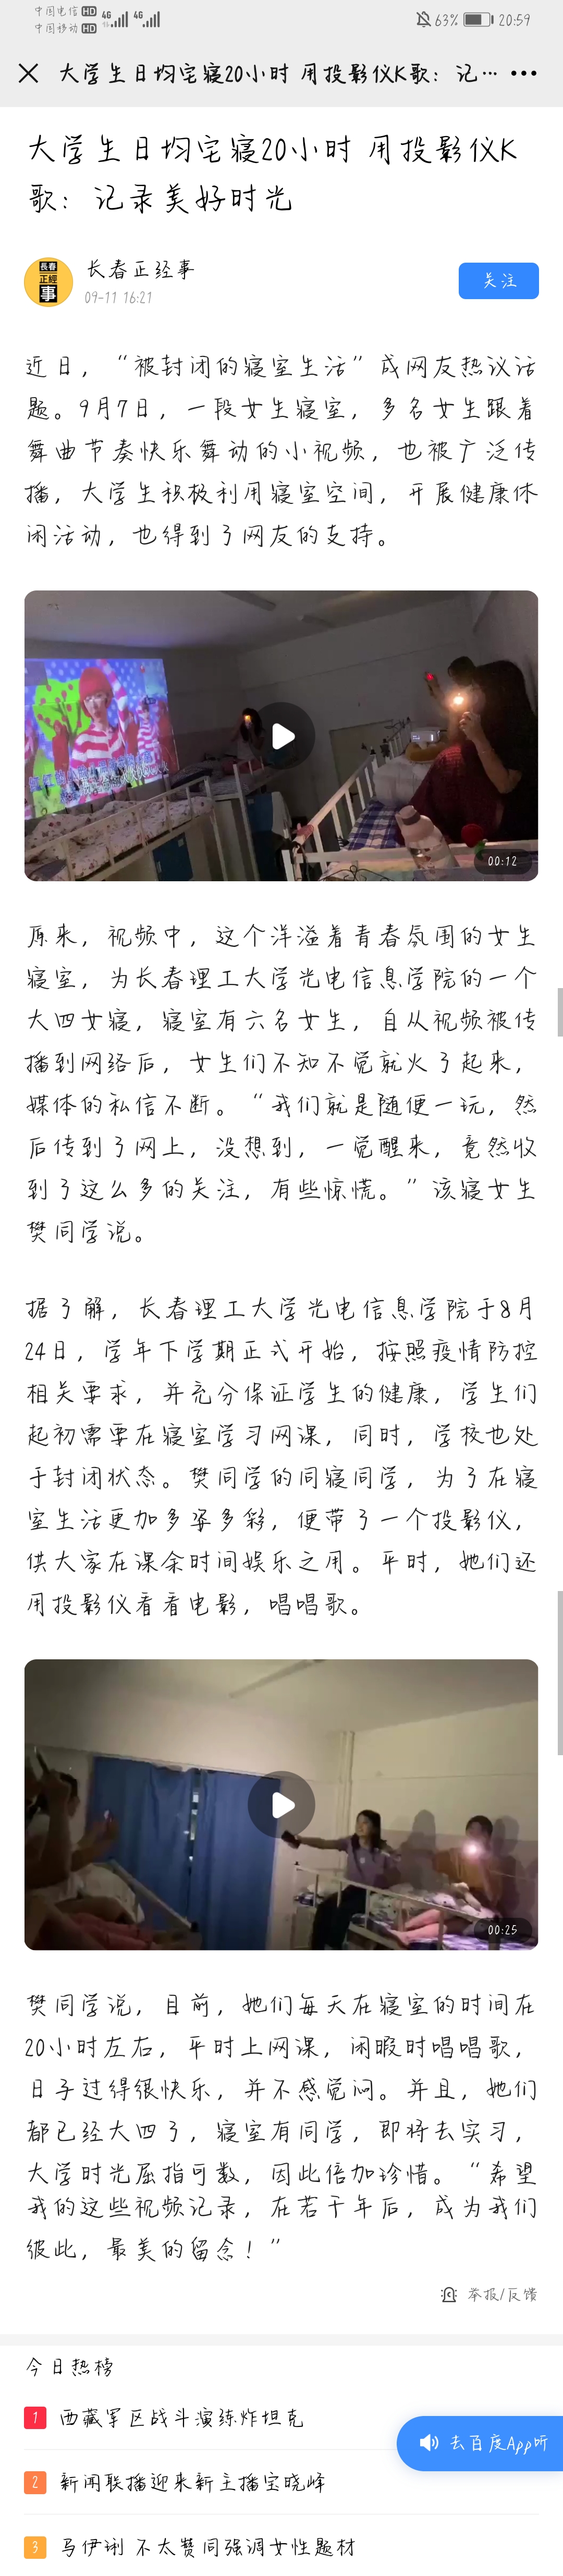 中国电信 HD 4G 4G 63% 20:59
中国移动 HD
大学生日均宅寝20小时 用投影仪K歌：记… •••
大学生日均宅寝20小时 用投影仪K
歌：记录美好时光
長春
正經
事
长春正经事
09-11 16:21
关注
近日，“被封闭的寝室生活”成网友热议话
题。9月7日，一段女生寝室，多名女生跟着
舞曲节奏快乐舞动的小视频，也被广泛传
播，大学生积极利用寝室空间，开展健康休
闲活动，也得到了网友的支持。
00:12
原来，视频中，这个洋溢着青春氛围的女生
寝室，为长春理工大学光电信息学院的一个
大四女寝，寝室有六名女生，自从视频被传
播到网络后，女生们不知不觉就火了起来，
媒体的私信不断。“我们就是随便一玩，然
后传到了网上，没想到，一觉醒来，竟然收
到了这么多的关注，有些惊慌。”该寝女生
樊同学说。
据了解，长春理工大学光电信息学院于8月
24日，学年下学期正式开始，按照疫情防控
相关要求，并充分保证学生的健康，学生们
起初需要在寝室学习网课，同时，学校也处
于封闭状态。樊同学的同寝同学，为了在寝
室生活更加多姿多彩，便带了一个投影仪，
供大家在课余时间娱乐之用。平时，她们还
用投影仪看看电影，唱唱歌。
00:25
樊同学说，目前，她们每天在寝室的时间在
20小时左右，平时上网课，闲暇时唱唱歌，
日子过得很快乐，并不感觉闷。并且，她们
都已经大四了，寝室有同学，即将去实习，
大学时光屈指可数，因此倍加珍惜。“希望
我的这些视频记录，在若干年后，成为我们
彼此，最美的留念！”
举报/反馈
今日热榜
1 西藏军区战斗演练炸坦克
去百度App听
2 新闻联播迎来新主播宝晓峰
3 马伊琍 不太赞同强调女性题材